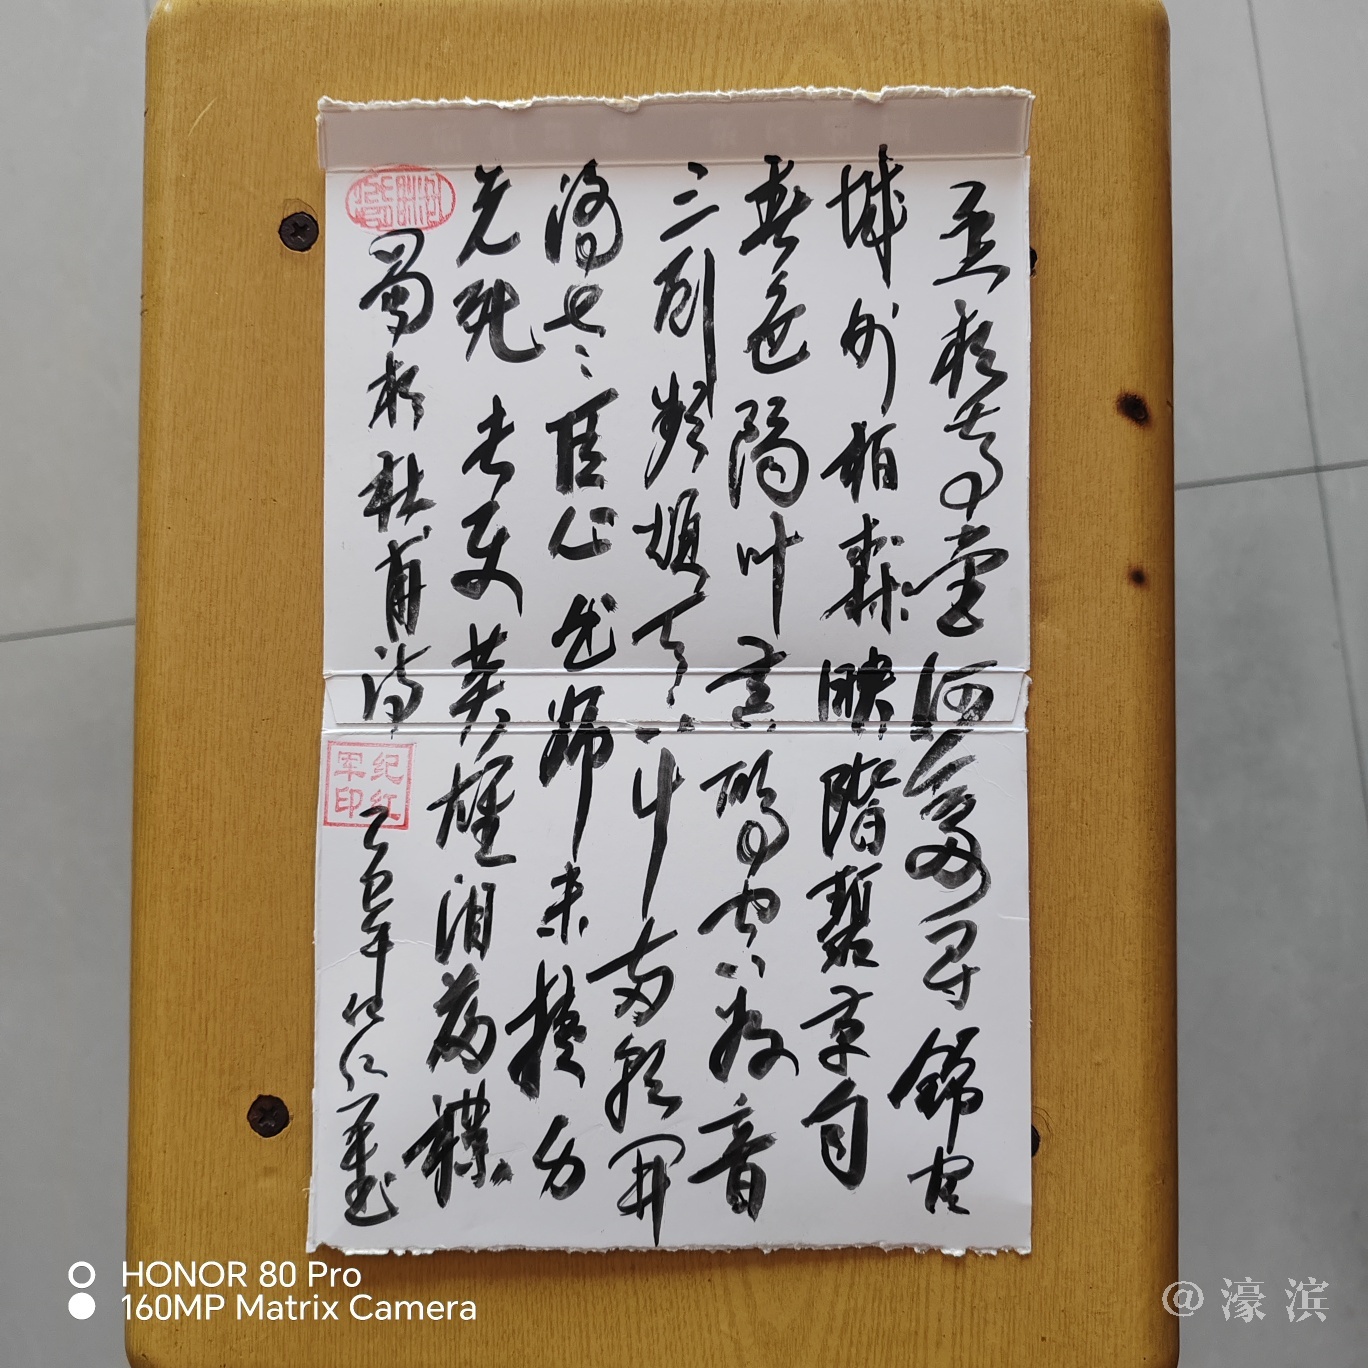 丞相祠堂何處尋錦官
城外柏森森映階碧草自
春色隔叶黄鹂空好音
三顾频煩天下计两朝開
济老臣心出師未捷身
先死长使英雄泪满襟
蜀相杜甫诗
乙巳年纪红军书
纪红军印
HONOR 80 Pro
160MP Matrix Camera
@濠滨